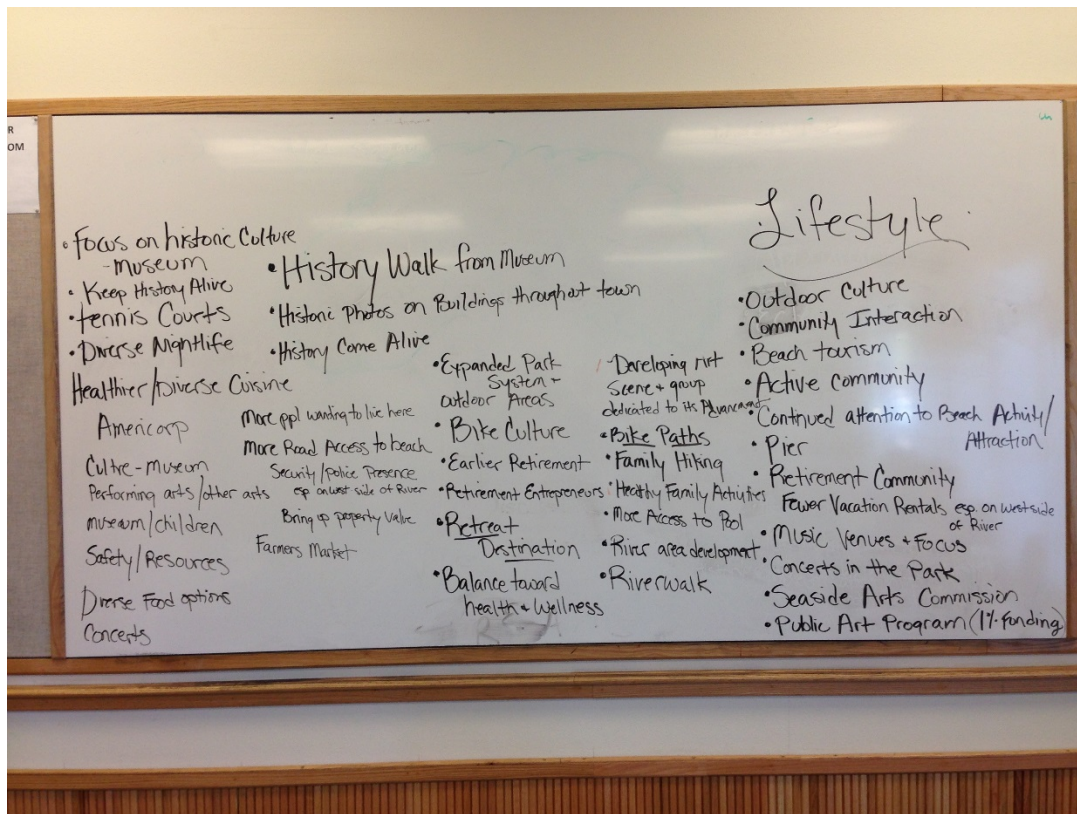 R
OM
Lifestyle
• Focus on historic Culture
- museum
• Keep History Alive
• tennis Courts
• Diverse Nightlife
Healthier/Diverse Cuisine
Americorp
Cultre - museum
Performing arts/other arts
museum/children
Safety/Resources
Diverse Food options
Concerts
• History Walk from Museum
• Historic Photos on Buildings throughout town
• History Come Alive
More ppl wanting to live here
More Road Access to beach
Security/Police Presence
esp. on west side of River
Bring up property value
Farmers Market
• Expanded Park
System +
outdoor Areas
• Bike Culture
• Earlier Retirement
• Retirement Entrepreneurs
• Retreat
Destination
• Balance toward
health + Wellness
• Developing Art
Scene + group
dedicated to its Advancement
• Bike Paths
• Family Hiking
• Healthy Family Activities
• More Access to Pool
• River area development
• Riverwalk
• Outdoor Culture
• Community Interaction
• Beach tourism
• Active community
• Continued attention to Beach Activity/
Attraction
• Pier
• Retirement Community
Fewer Vacation Rentals esp. on west side
of River
• Music Venues + Focus
• Concerts in the Park
• Seaside Arts Commission
• Public Art Program (1% funding)